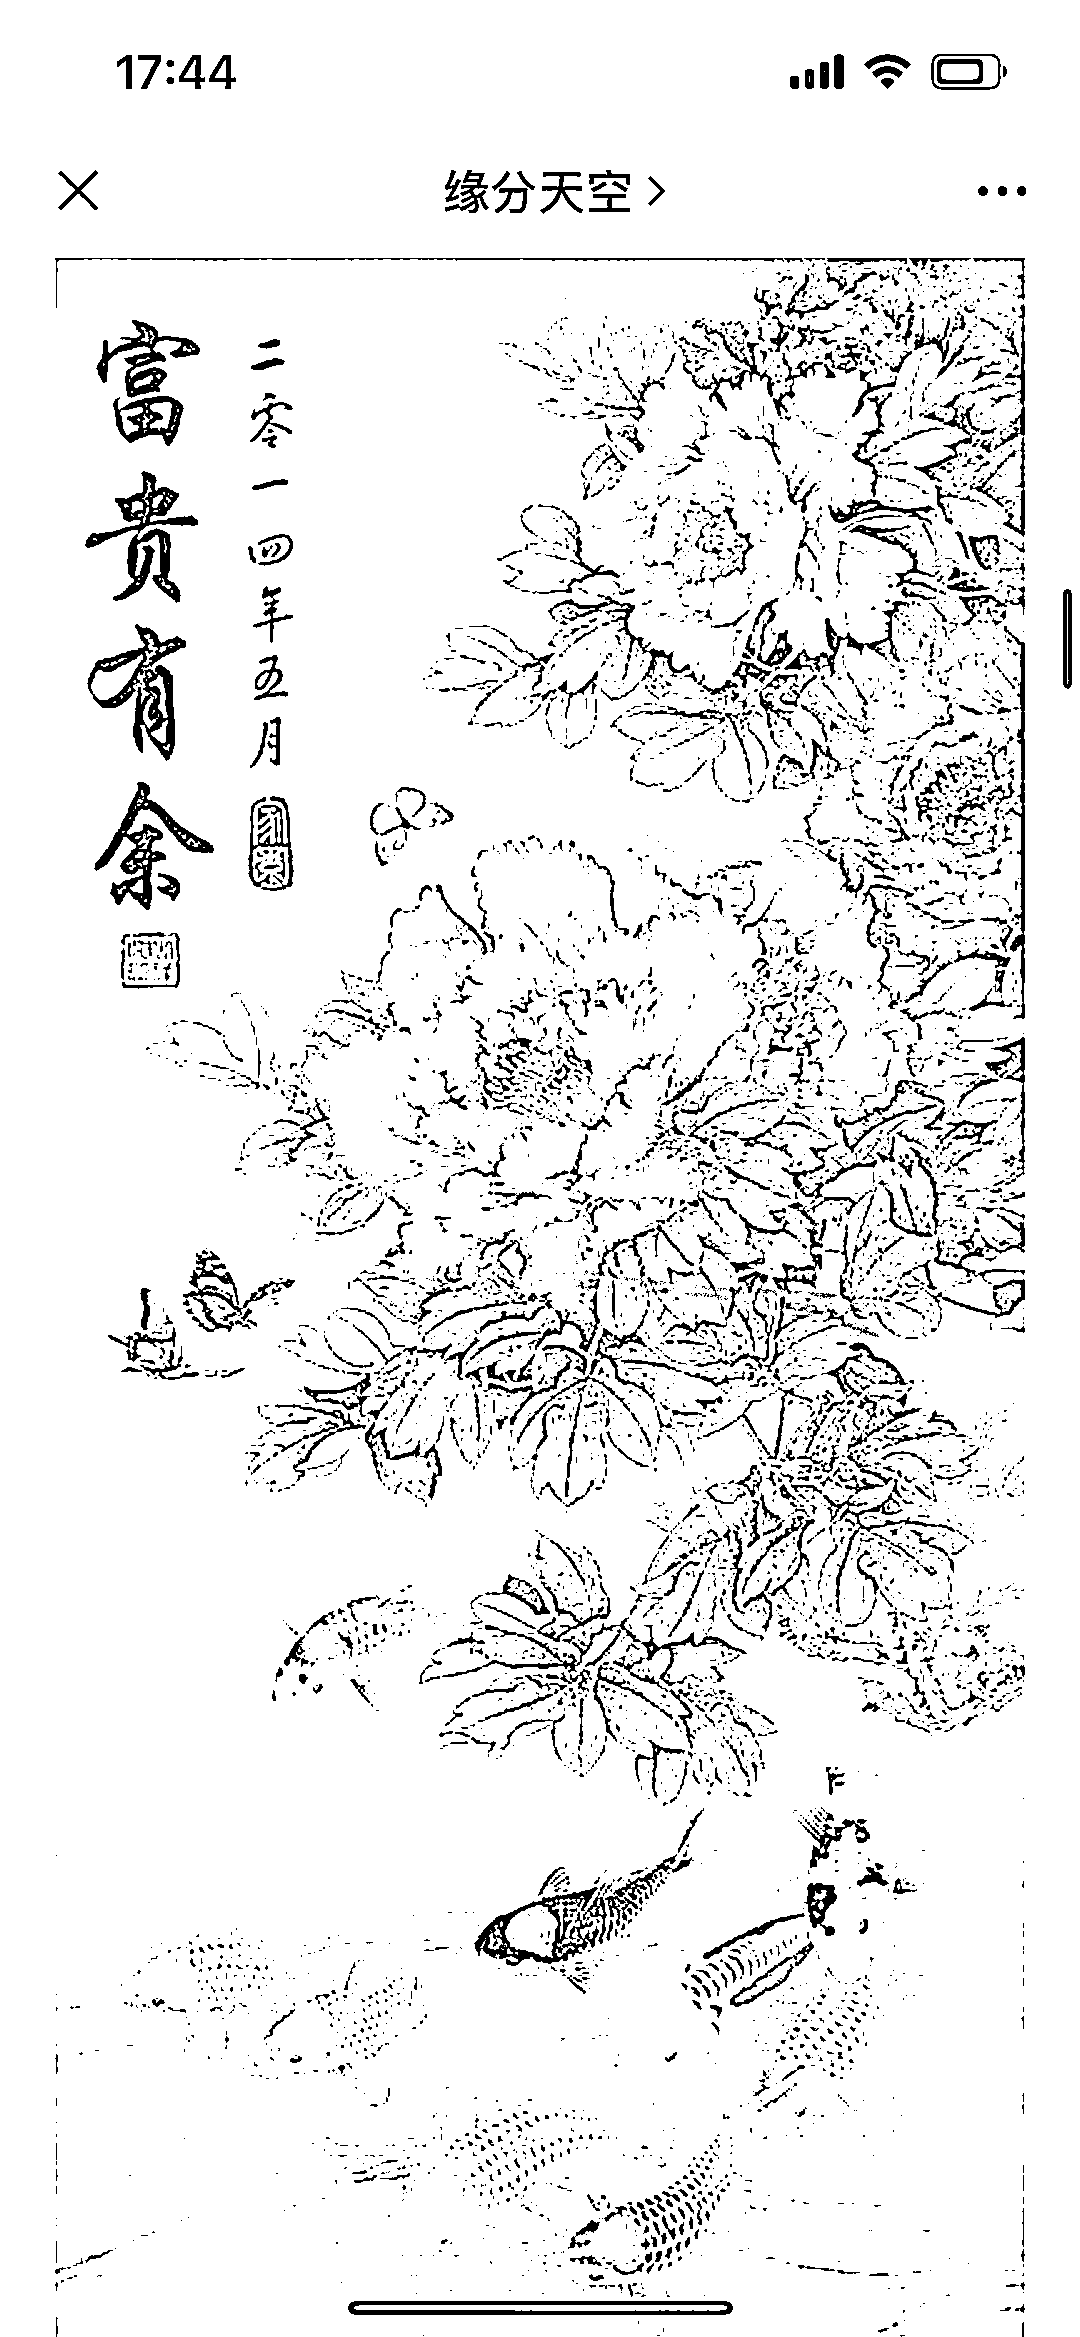 17:44
缘分天空
富贵有余
二零一四年五月